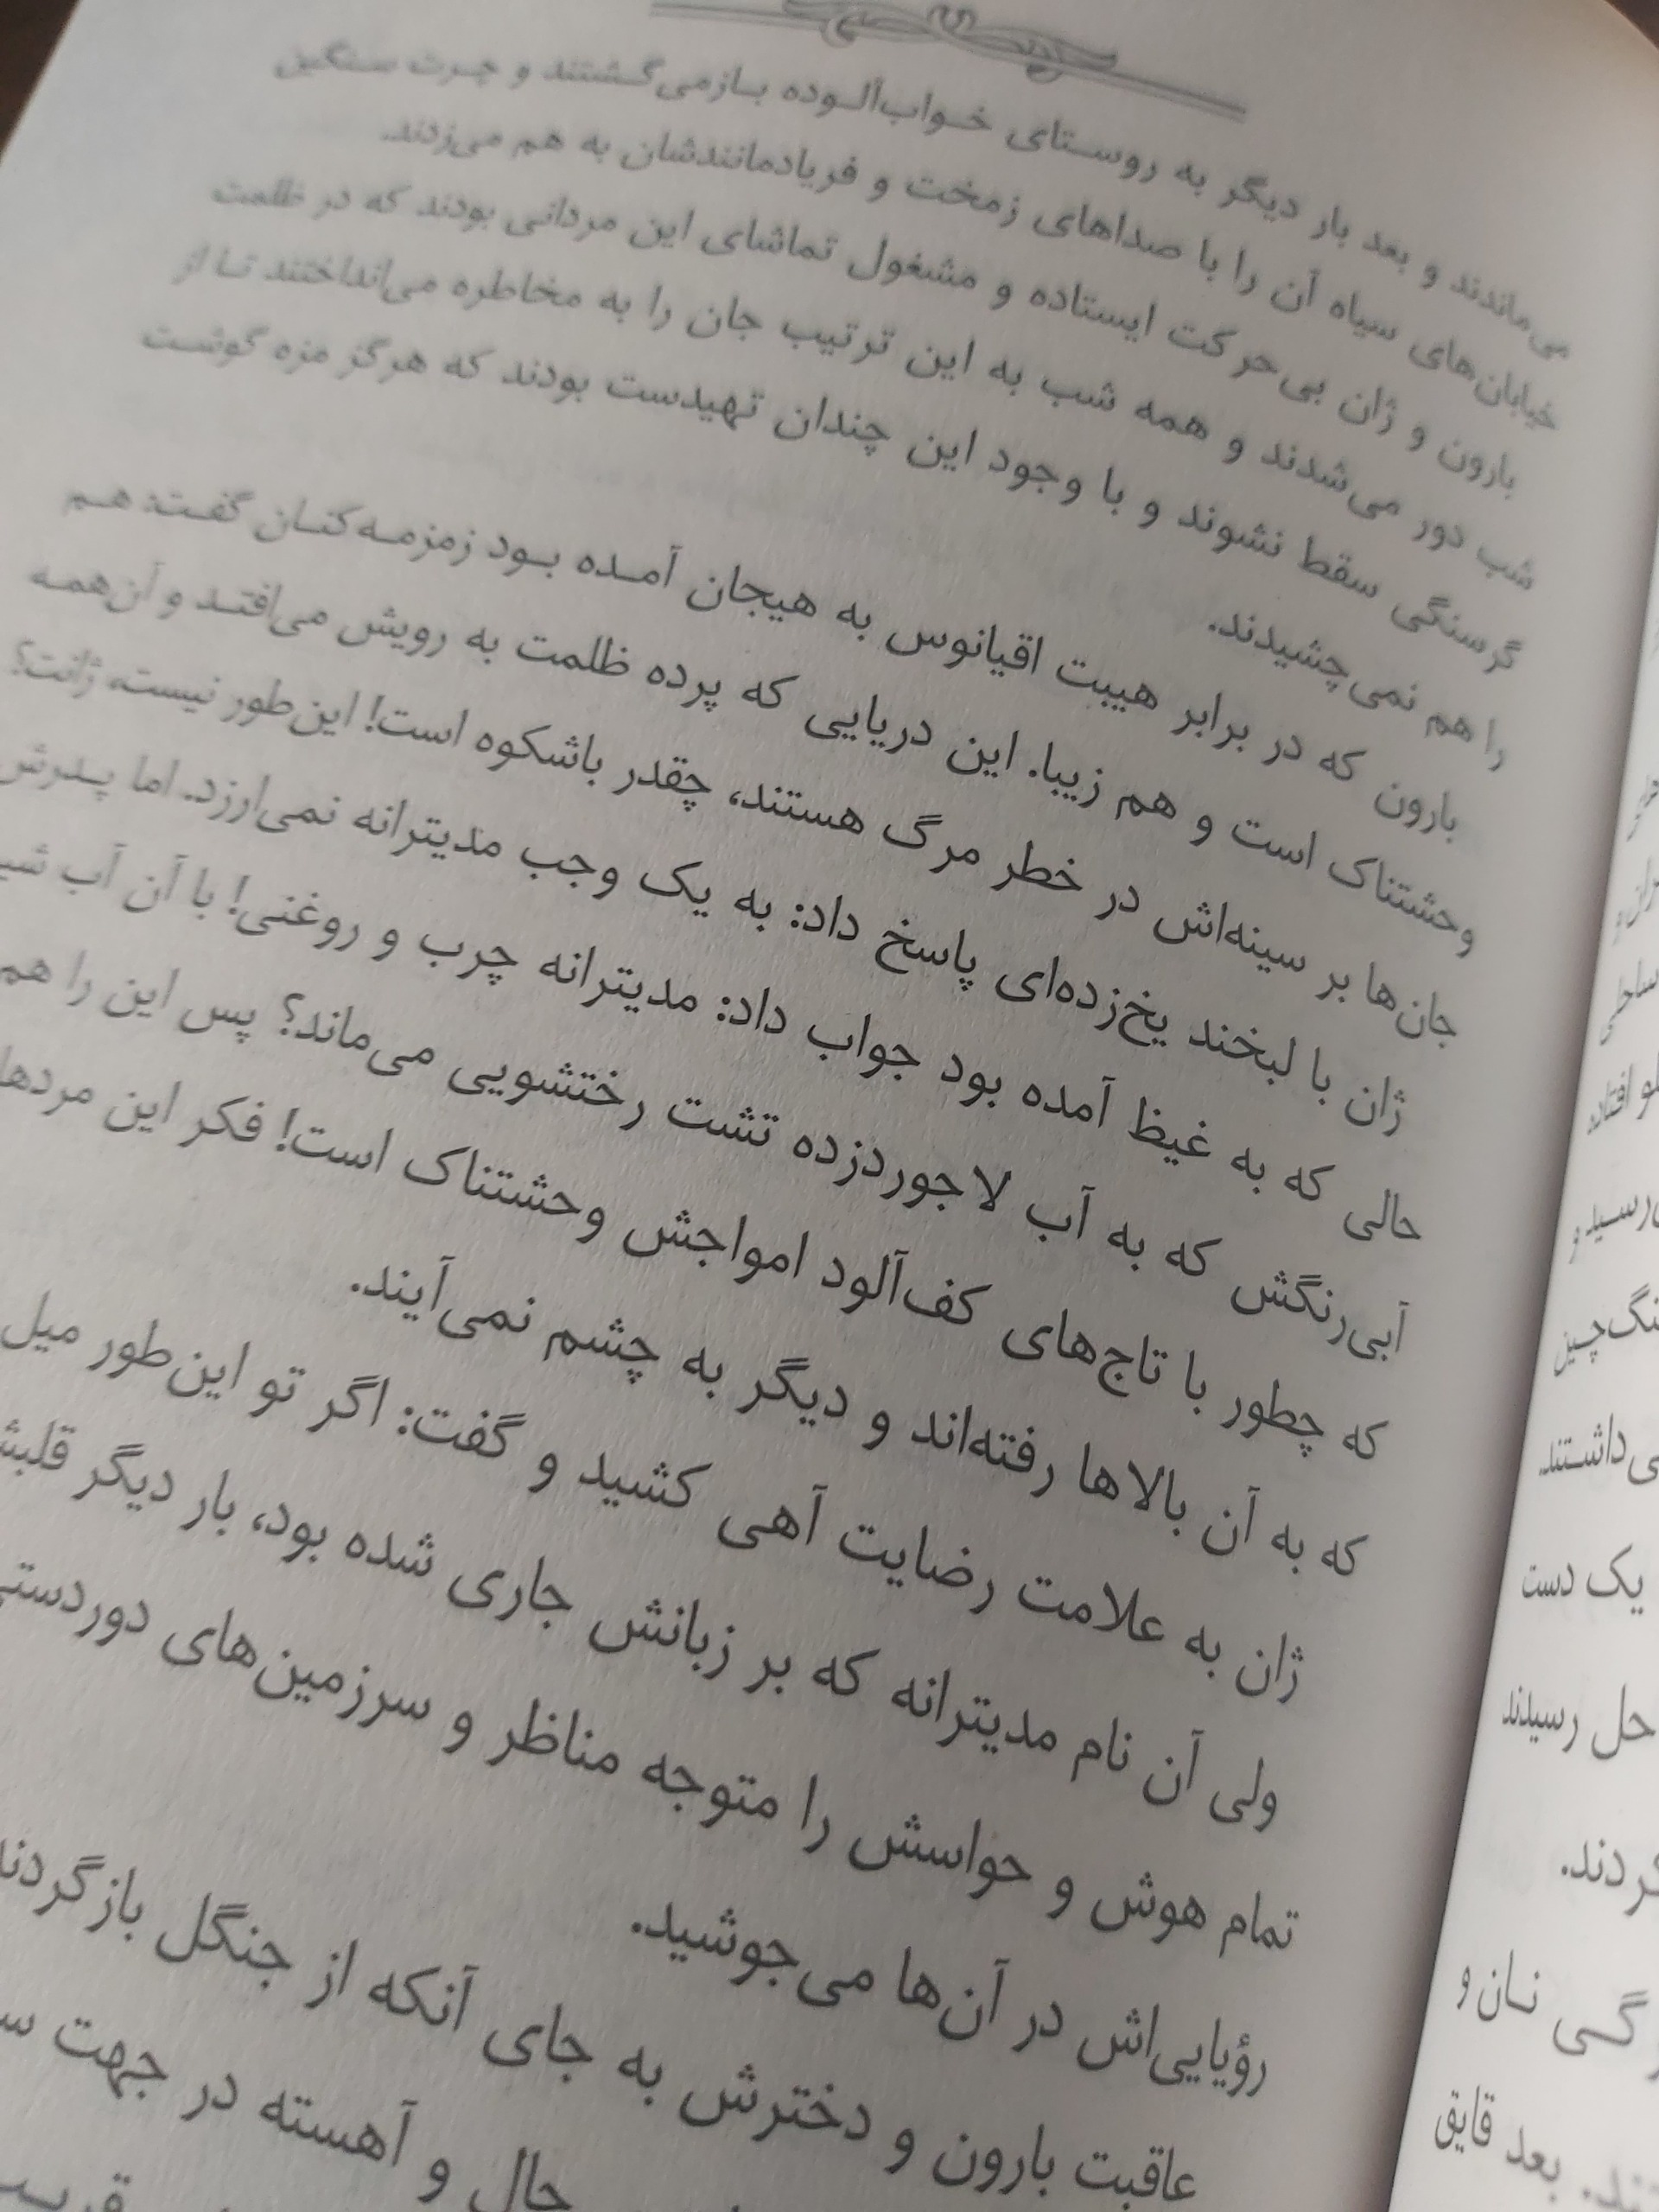 می‌ماندند و بعد بار دیگر به روستای خواب‌آلوده بازمی‌گشتند و چرت سنگین
خیابان‌های سیاه آن را با صداهای زمخت و فریادمانندشان به هم می‌زدند.
بارون و ژان بی‌حرکت ایستاده و مشغول تماشای این مردانی بودند که در ظلمت
شب دور می‌شدند و همه شب به این ترتیب جان را به مخاطره می‌انداختند تا از
گرسنگی سقط نشوند و با وجود این چندان تهیدست بودند که هرگز مزه گوشت
را هم نمی‌چشیدند.
بارون که در برابر هیبت اقیانوس به هیجان آمده بود زمزمه‌کنان گفت: هم
وحشتناک است و هم زیبا. این دریایی که پرده ظلمت به رویش می‌افتد و آن‌همه
جان‌ها بر سینه‌اش در خطر مرگ هستند، چقدر باشکوه است! این‌طور نیست، ژانت؟
ژان با لبخند یخ‌زده‌ای پاسخ داد: به یک وجب مدیترانه نمی‌ارزد. اما پدرش
حالی که به غیظ آمده بود جواب داد: مدیترانه چرب و روغنی! با آن آب
آبی‌رنگش که به آب لاجوردزده تشت رختشویی می‌ماند؟ پس این را هم
که چطور با تاج‌های کف‌آلود امواجش وحشتناک است! فکر این مردها
که به آن بالاها رفته‌اند و دیگر به چشم نمی‌آیند.
ژان به علامت رضایت آهی کشید و گفت: اگر تو این‌طور میل
ولی آن نام مدیترانه که بر زبانش جاری شده بود، بار دیگر
تمام هوش و حواسش را متوجه مناظر و سرزمین‌های
رؤیایی‌اش در آن‌ها می‌جوشید.
عاقبت بارون و دخترش به جای آنکه از جنگل
حال و آهسته در جهت
لو افتاده
رسید و
ی‌داشتند
یک دست
حل رسیدند
گی نان و
بعد قایق